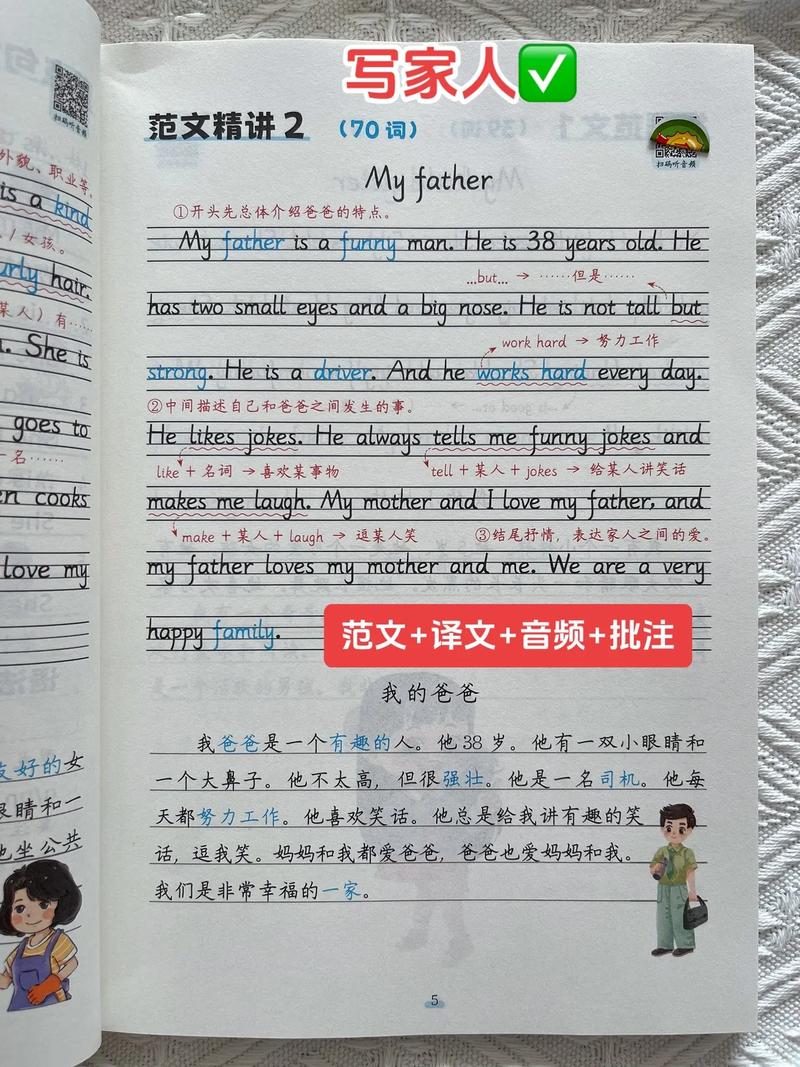 写家人✅
扫码听音频
外貌、职业等。
is a kind
/ 女孩。
urly hair.
某人）有……
. She is
goes to
一名……
en cooks
love my
友好的女
眼睛和一
也坐公共
范文精讲2 （70词）
扫码听音频
My father
①开头先总体介绍爸爸的特点。
My father is a funny man. He is 38 years old. He
...but... → ……但是……
has two small eyes and a big nose. He is not tall but
work hard → 努力工作
strong. He is a driver. And he works hard every day.
②中间描述自己和爸爸之间发生的事。
He likes jokes. He always tells me funny jokes and
like + 名词 → 喜欢某事物 tell + 某人 + jokes → 给某人讲笑话
makes me laugh. My mother and I love my father, and
make + 某人 + laugh → 逗某人笑 ③结尾抒情，表达家人之间的爱。
my father loves my mother and me. We are a very
happy family.
范文+译文+音频+批注
我的爸爸
我爸爸是一个有趣的人。他38岁。他有一双小眼睛和
一个大鼻子。他不太高，但很强壮。他是一名司机。他每
天都努力工作。他喜欢笑话。他总是给我讲有趣的笑
话，逗我笑。妈妈和我都爱爸爸，爸爸也爱妈妈和我。
我们是非常幸福的一家。
5